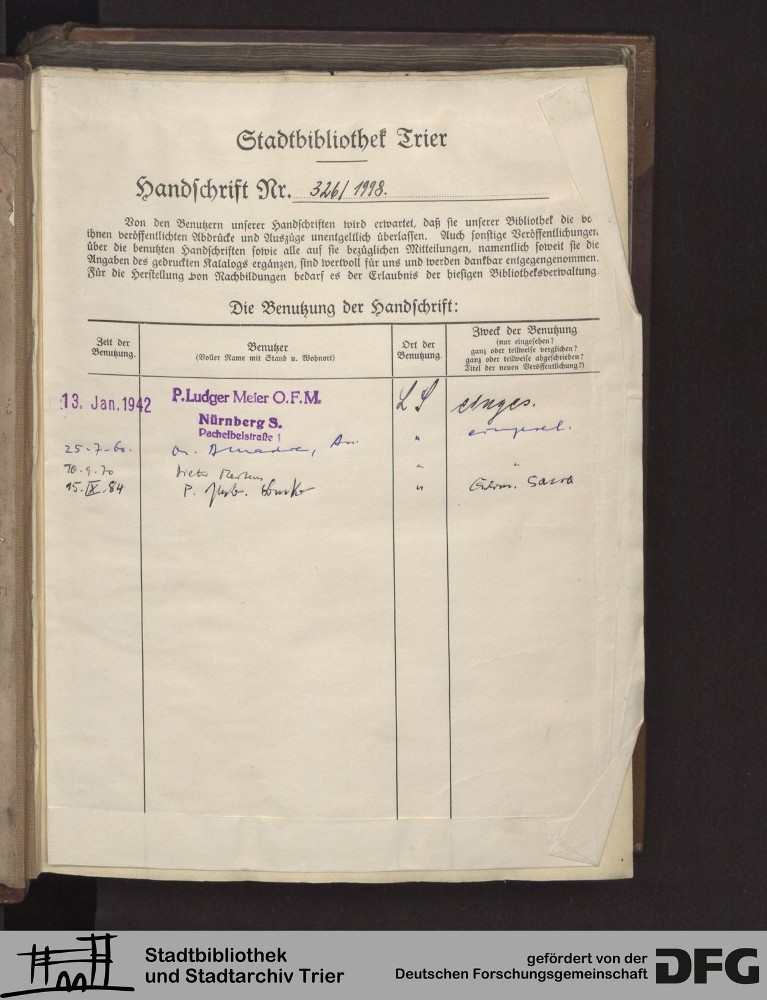 Stadtbibliothek Trier
Handschrift Nr. 326/1998.
Von den Benutzern unserer Handschriften wird erwartet, daß sie unserer Bibliothek die vo
ihnen veröffentlichten Abdrücke und Auszüge unentgeltlich überlassen. Auch sonstige Veröffentlichungen
über die benutzten Handschriften sowie alle auf sie bezüglichen Mitteilungen, namentlich soweit sie die
Angaben des gedruckten Katalogs ergänzen, sind wertvoll für uns und werden dankbar entgegengenommen.
Für die Herstellung von Nachbildungen bedarf es der Erlaubnis der hiesigen Bibliotheksverwaltung.
Die Benutzung der Handschrift:
Zeit der
Benutzung.
Benutzer
(Voller Name mit Stand u. Wohnort)
Ort der
Benutzung
Zweck der Benutzung
(nur eingesehen?
ganz oder teilweise verglichen?
ganz oder teilweise abgeschrieben?
Titel der neuen Veröffentlichung?)
13. Jan. 1942 P. Ludger Meier O.F.M. LS einges.
Nürnberg S.
Pachelbelstraße 1
25-7-60. "
10.9.70 Dieter Mertens " "
15.IX.84 P. "
Stadtbibliothek
und Stadtarchiv Trier
gefördert von der
Deutschen Forschungsgemeinschaft
DFG